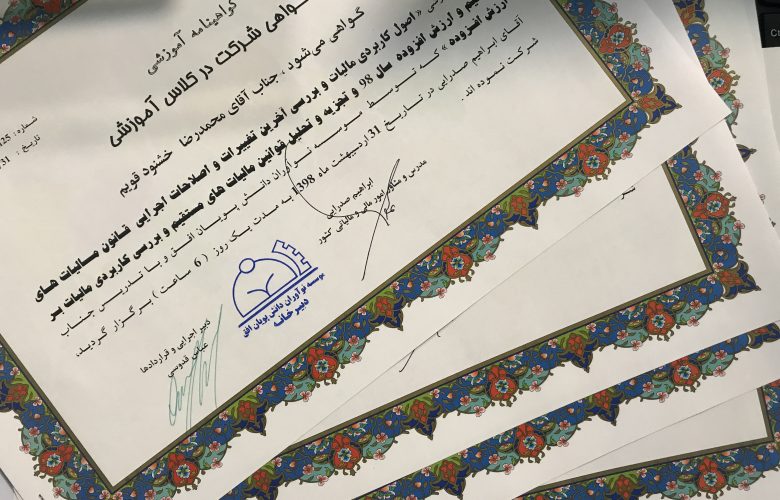 گواهینامه آموزشی
گواهی شرکت در کلاس آموزشی
شماره: 125
تاریخ: 31
گواهی می‌شود، جناب آقای محمدرضا خشنود قویم
« اصول کاربردی مالیات و بررسی آخرین تغییرات و اصلاحات اجرایی قانون مالیات های
و ارزش افزوده سال 98 و تجزیه و تحلیل قوانین مالیات های مستقیم و بررسی کاربردی مالیات بر
ارزش افزوده » که توسط موسسه نوآوران دانش پویان افق و با تدریس جناب
آقای ابراهیم صدرایی در تاریخ 31 اردیبهشت ماه 1398 به مدت یک روز ( 6 ساعت ) برگزار گردید،
شرکت نموده اند.
ابراهیم صدرایی
مدرس و مشاور امور مالی و مالیاتی کشور
موسسه نوآوران دانش پویان افق
دبیرخانه
دبیر اجرایی و قراردادها
قدوسی